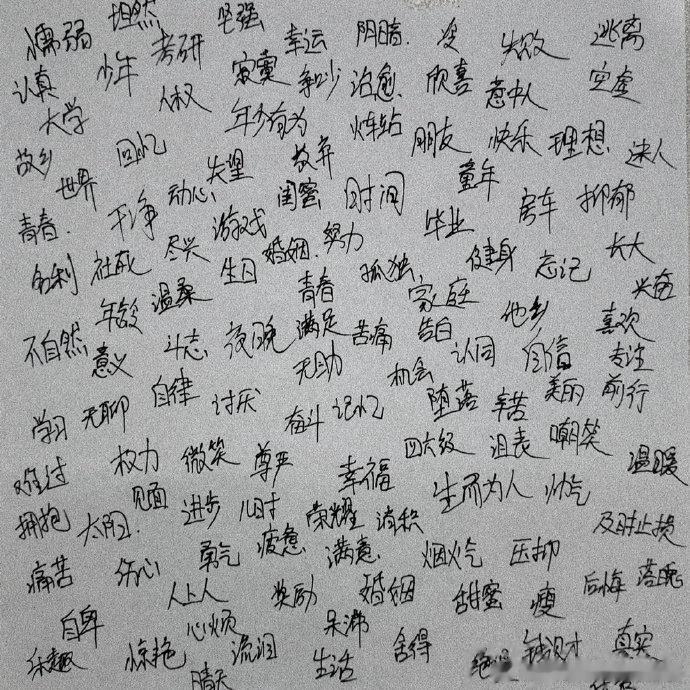 懦弱 坦然 坚强 幸运 阴暗 失败 逃离
认真 少年 考研 寂寞 治愈 欣喜 意中人 空虚
大学 人权 年少有为 火车站 朋友 快乐 理想 迷人
故乡 世界 回忆 失望 放弃 童年
青春 干净 动心 闺蜜 时间 毕业 房车 抑郁
名利 社死 尽兴 游戏 婚姻 努力 孤独 健身 忘记 长大
年龄 温柔 生日 青春 家庭 他乡 兴奋
不自然 意义 斗志 夜晚 满足 苦痛 告白 认同 自信 喜欢
学习 无聊 自律 讨厌 无助 机会 堕落 辛苦 美丽 专注 前行
奋斗 记忆
难过 权力 微笑 尊严 幸福 四六级 沮丧 嘲笑 温暖
拥抱 太阳 见面 进步 儿时 荣耀 消积 生而为人 帅气
痛苦 伤心 勇气 疲惫 满意 烟火气 压抑 及时止损
人上人 奖励 婚姻 甜蜜 瘦 后悔 落魄
自卑 心烦 呆滞
乐趣 惊艳 流泪 生活 舍得 真实
晴天